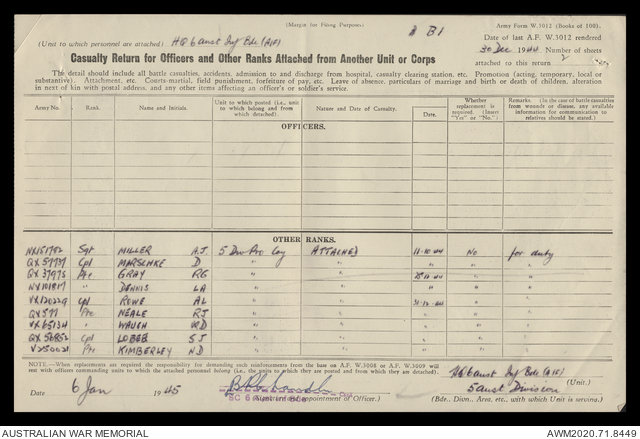 (Margin for Filing Purposes)
Army Form W.3012 (Books of 100).
B1
Date of last A.F. W.3012 rendered
(Unit to which personnel are attached) HQ 6 Aust Inf Bde (AIF)
30 Dec 1944 Number of sheets
attached to this return 2
Casualty Return for Officers and Other Ranks Attached from Another Unit or Corps
The detail should include all battle casualties, accidents, admission to and discharge from hospital, casualty clearing station, etc. Promotion (acting, temporary, local or
substantive). Attachment, etc. Courts-martial, field punishment, forfeiture of pay, etc. Leave of absence, particulars of marriage and birth or death of children, alteration
in next of kin with postal address, and any other items affecting an officer's or soldier's service.
Army No. Rank. Name and Initials. Unit to which posted (i.e., unit to which belong and from which detached). Nature and Date of Casualty. Date. Whether replacement is required. (Insert "Yes" or "No.") Remarks. (In the case of battle casualties from wounds or disease, any available information for communication to relatives should be stated.)
OFFICERS.
OTHER RANKS.
Sgt MILLER A.J. 5 Div Pro Coy ATTACHED 11-10-44 No for duty
Cpl MARSCHKE D " " " " "
Pte GRAY RG " " " "
" DENNIS LA " " " " "
Cpl ROWE AL " " 31-12-44 " "
QX577 Pte NEALE RJ " " " " "
VX65134 " WAUGH " " " " "
Cpl LOBEB SJ " " " " "
Pte KIMBERLEY ND " " " " "
NOTE.—When replacements are required the responsibility for demanding such reinforcements from the base on A.F. W.3008 or A.F. W.3009 will
rest with officers commanding units to which the attached personnel belong (i.e., the units to which they are posted and from which they are detached).
HQ 6 Aust Inf Bde (AIF)
(Unit.)
Date 6 Jan 1945
SC 6 Aust Inf Bde
(Signature and appointment of Officer.)
5 Aust Division
(Bde., Divn., Area, etc., with which Unit is serving.)
AUSTRALIAN WAR MEMORIAL
AWM2020.71.8449